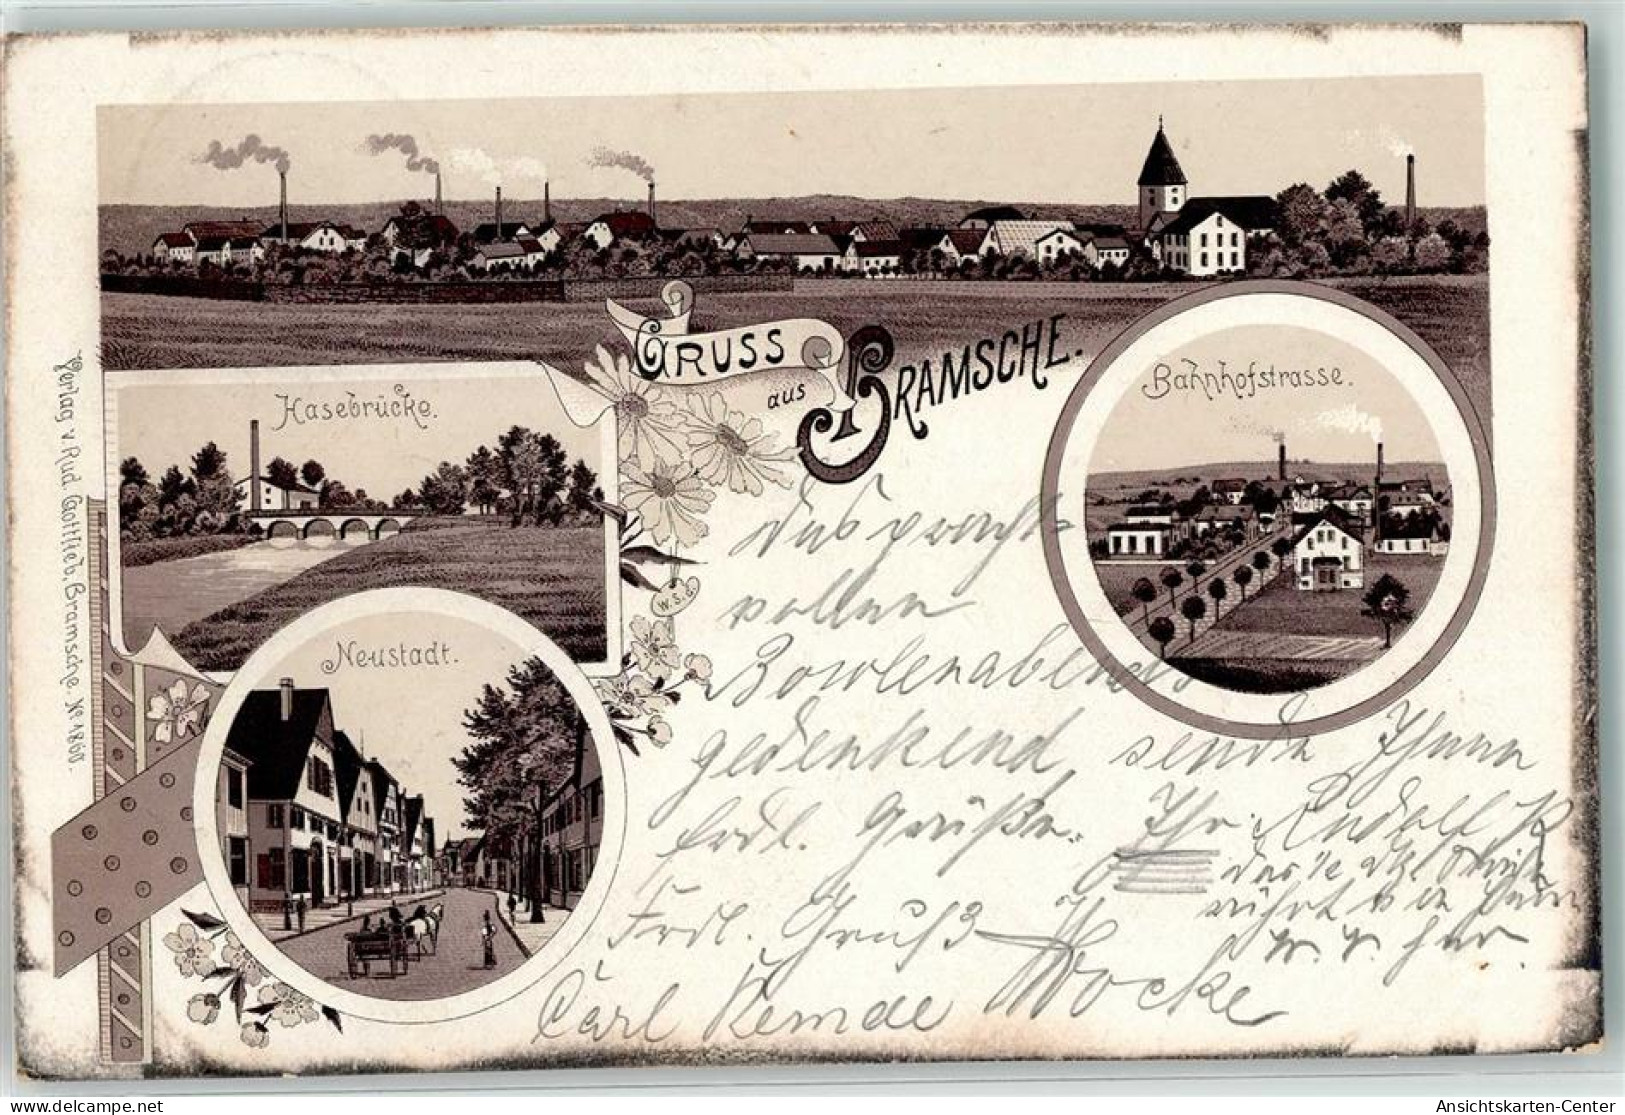 GRUSS
aus
BRAMSCHE.
Hasebrücke.
Bahnhofstrasse.
Neustadt.
W.S.G.
Verlag v. Rud. Gottlieb, Bramsche. No 1860.
Des pracht-
vollen
Bowlenabends
gedenkend sendet Ihnen
frdl. Grüße. Ihr Rudolf
Frdl. Gruß
Wocke
Carl Kemde
delcampe.net
Ansichtskarten-Center